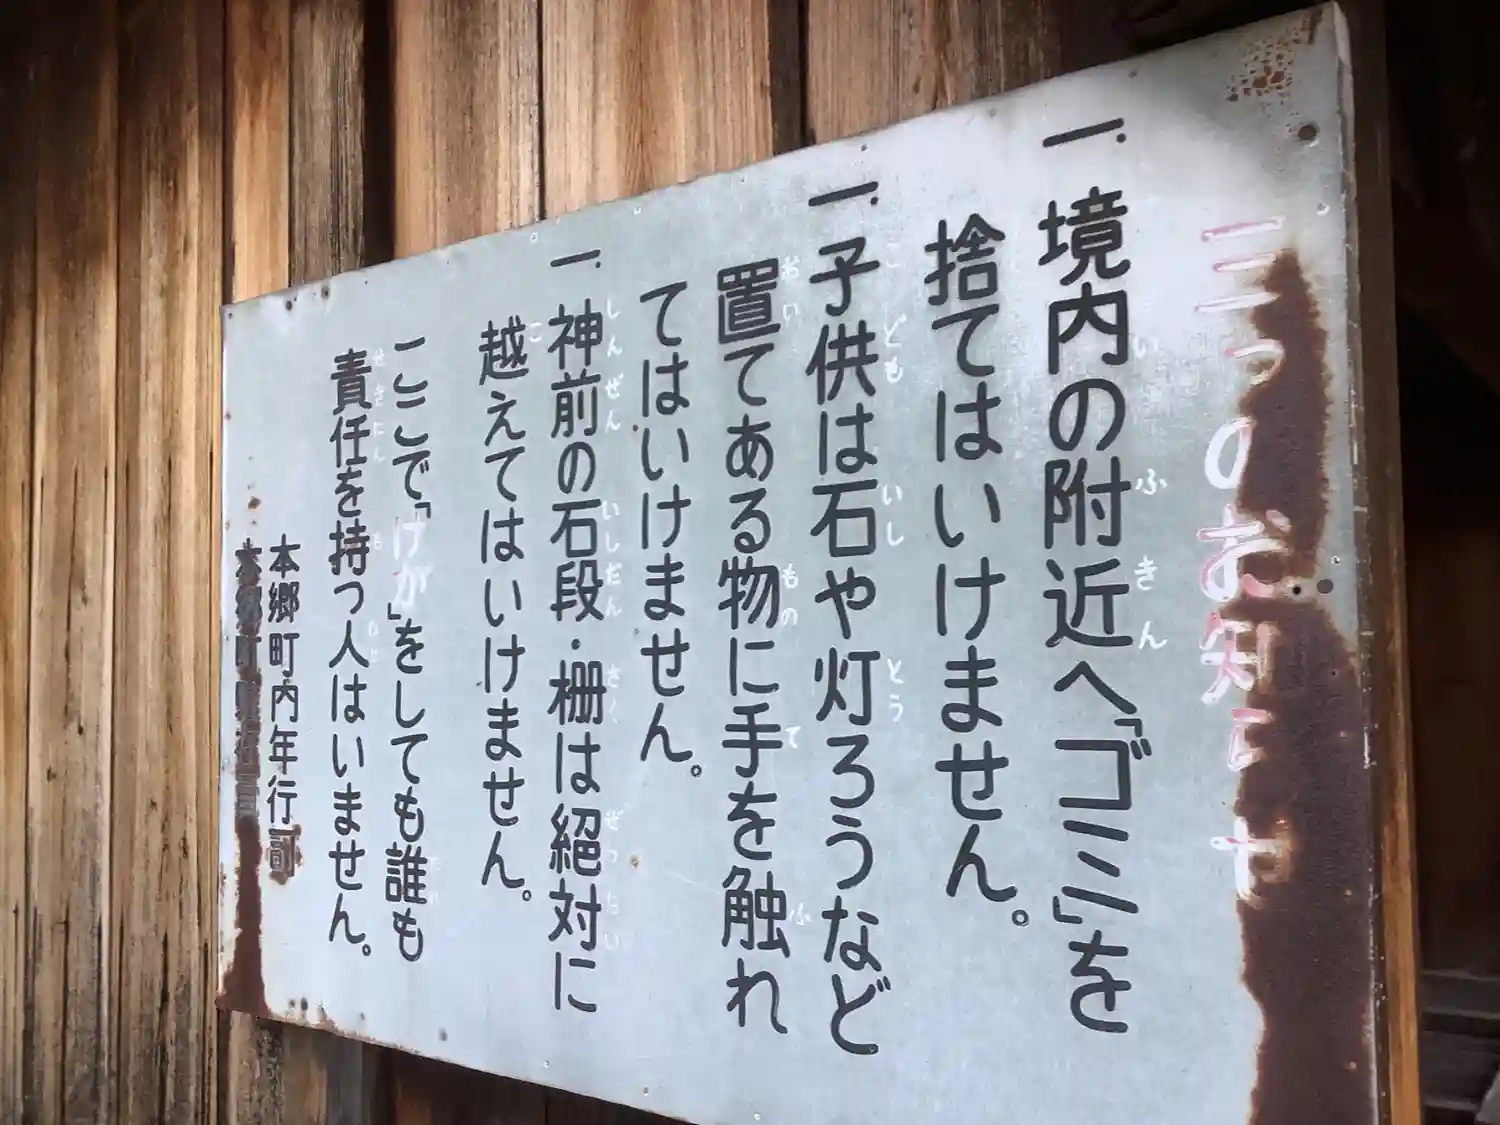 三つのお知らせ
一.境内の附近へ「ゴミ」を
捨てはいけません。
一.子供は石や灯ろうなど
置てある物に手を触れ
てはいけません。
一.神前の石段・柵は絕対に
越えてはいけません。
ここで「けが」をしても誰も
責任を持つ人はいません。
本郷町内年行司
本郷町